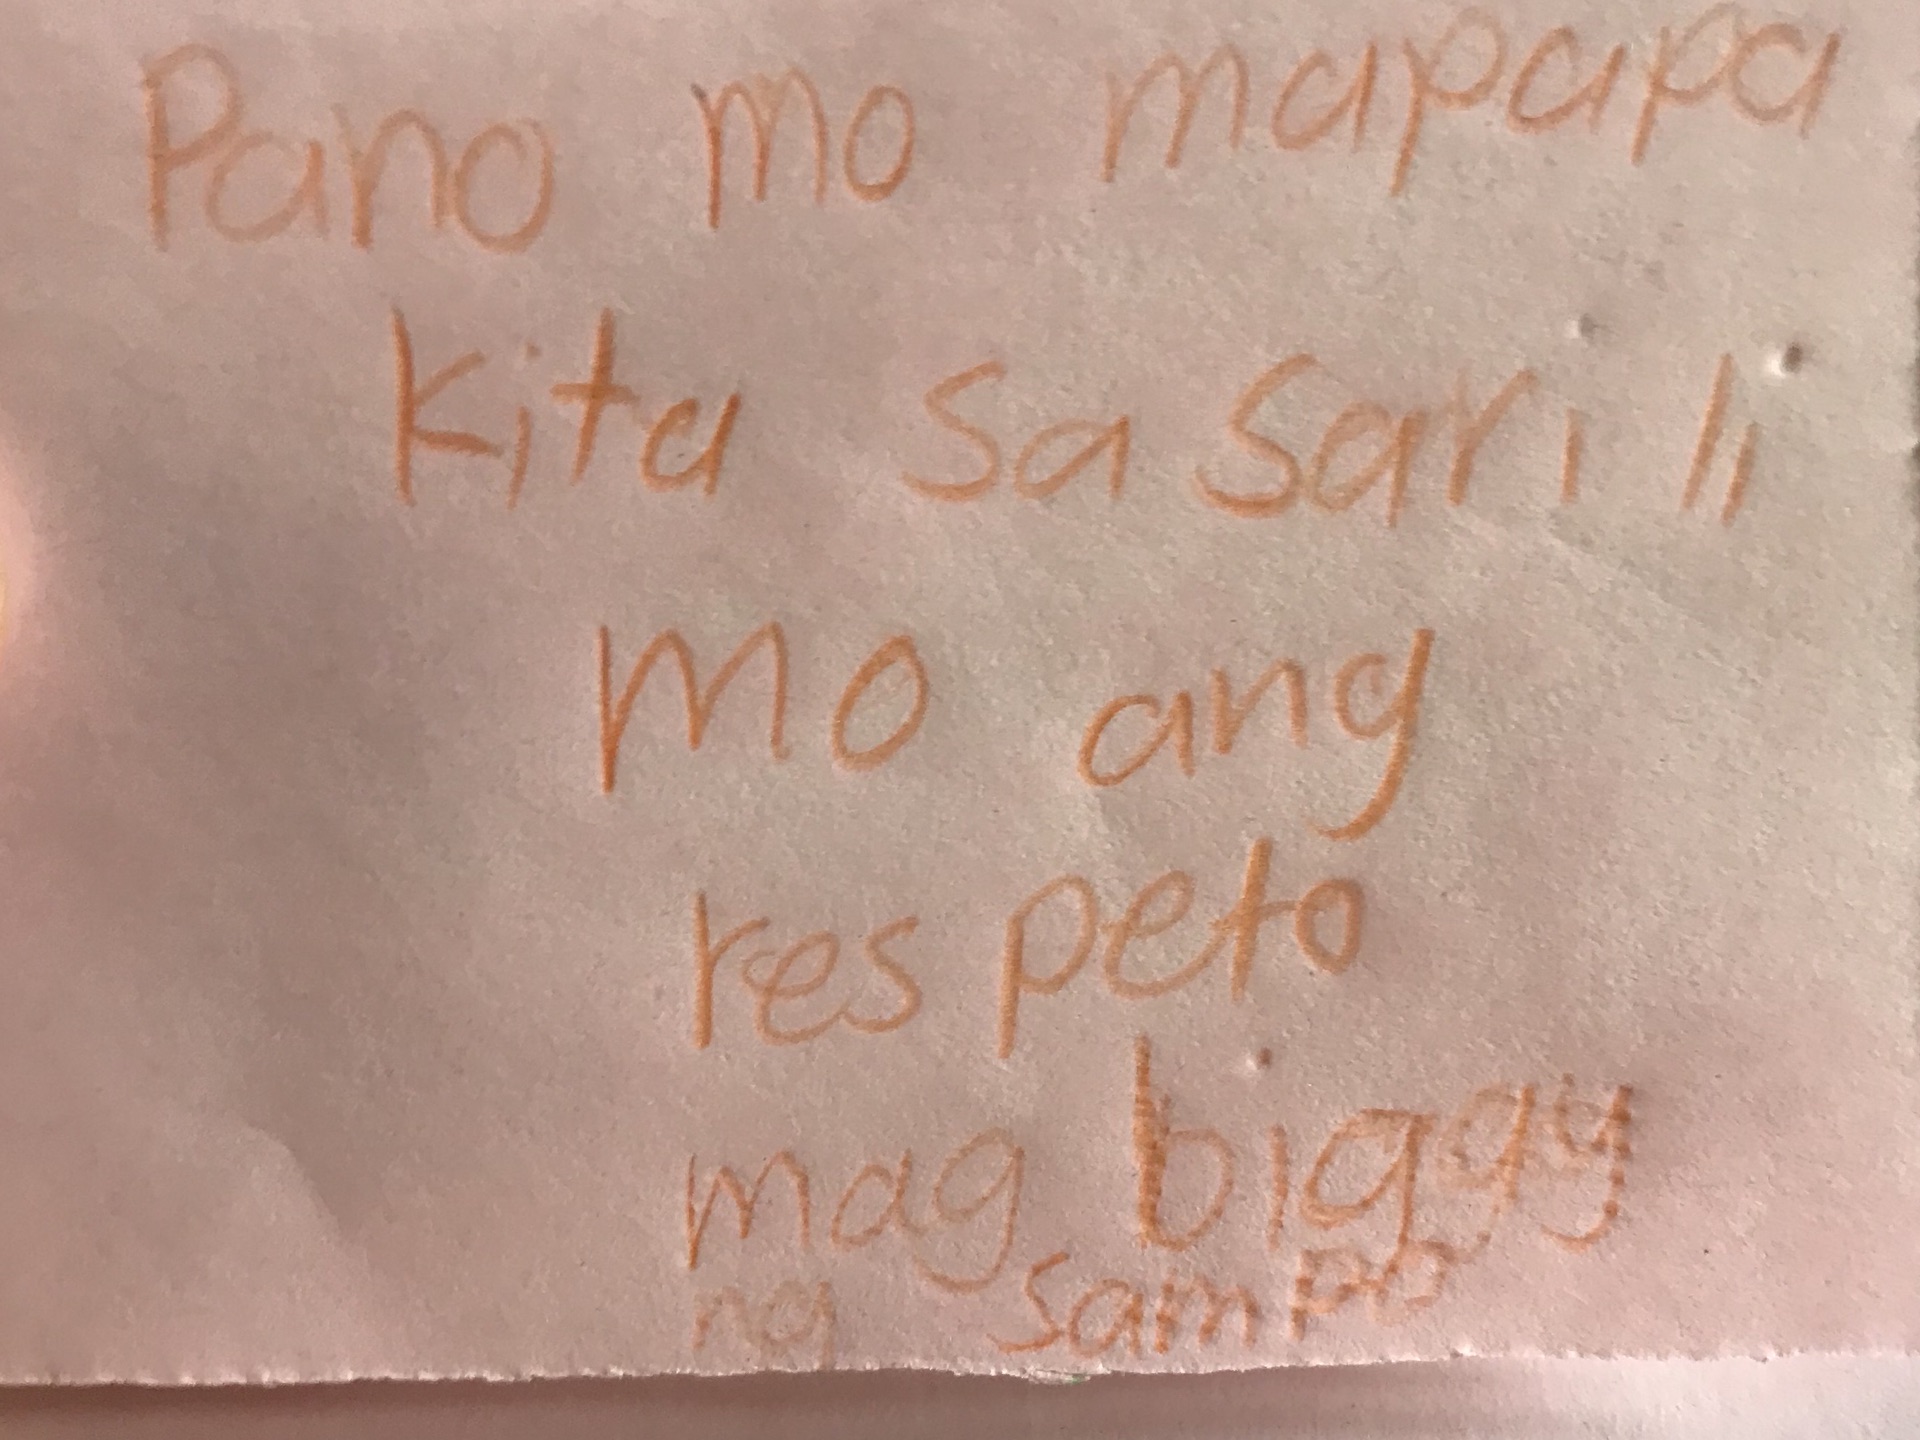 Pano mo mapapa
kita sa sarili
mo ang
respeto
mag biggy
ng sampo